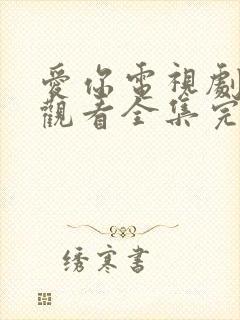 愛你電視劇
觀看全集完
绣寒書